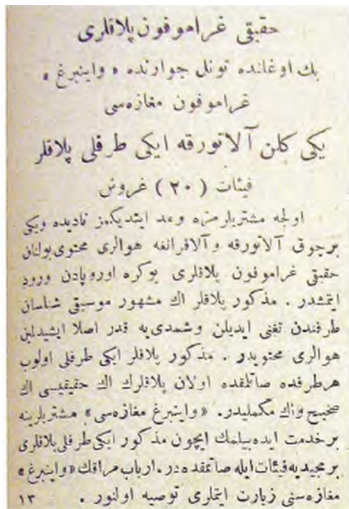 حقیقی غراموفون پلاقلری
بك اوغلنده تونل جوارنده « واینبرغ »
غراموفون مغازه‌سی
یکی کلن آلاتورقه ایکی طرفلی پلاقلر
فیئات ( ٢٠ ) غروش
اولجه مشتریلرمزه وعد ایتدیکمز نادیده ویکی
برچوق آلاتورقه وآلافرانغه هوالری محتوی بولنان
حقیقی غراموفون پلاقلری بوکره اوروپادن ورود
ایتمشدر . مذکور پلاقلر اك مشهور موسیقی شناسان
طرفندن تغنی ایدیلن وشمدی‌یه قدر اصلا ایشیدیلن
هوالری محتویدر . مذکور پلاقلر ایکی طرفلی اولوب
هر طرفده صاتلمقده اولان پلاقلرك اك حقیقیسی اك
صحیح واك مکملیدر. « واینبرغ مغازه‌سی » مشتریلرینه
بر خدمت ایده‌بیلمك ایچون مذکور ایکی طرفلی پلاقلری
بر مجیدیه فیئات ایله صاتمقده‌در. ارباب مراقك « واینبرغ »
مغازه‌سنی زیارت ایتملری توصیه اولنور . ١٣